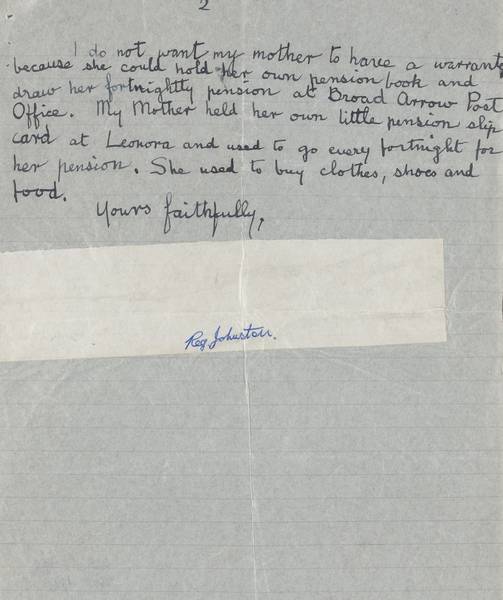 2
I do not want my mother to have a warrant
because she could hold her own pension book and
draw her fortnightly pension at Broad Arrow Post
Office. My Mother held her own little pension slip
card at Leonora and used to go every fortnight for
her pension. She used to buy clothes, shoes and
food.
Yours faithfully,
Reg Johnston.